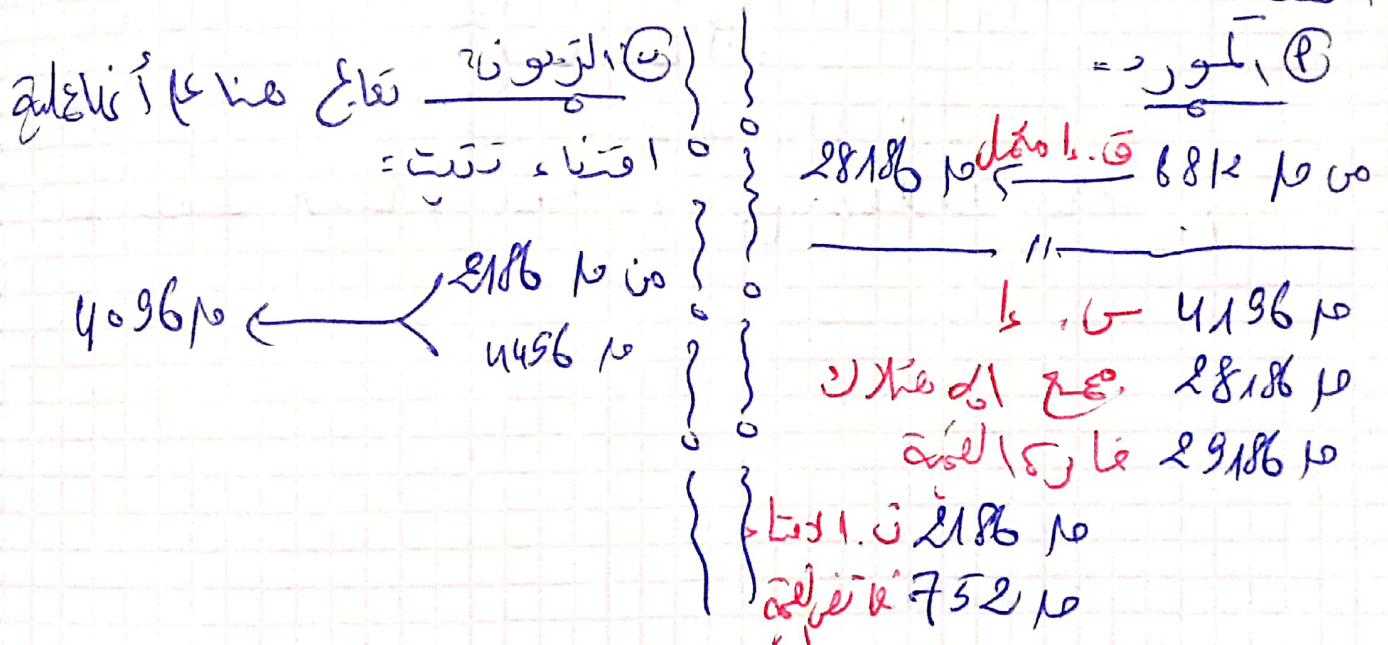 أ المورد =
من حـ 6812 ق. إ مكمل حـ 28186
//
حـ 4196 س. إ
حـ 28186 مجمع الاهتلاك
حـ 29186 خارج القيمة
حـ 2186 ت. الاقتناء
حـ 752 فائض القيمة
ب الزبون = تعالج هنا على أنها عملية
اقتناء تثبيت =
من حـ 2186
حـ 4456
حـ 4096